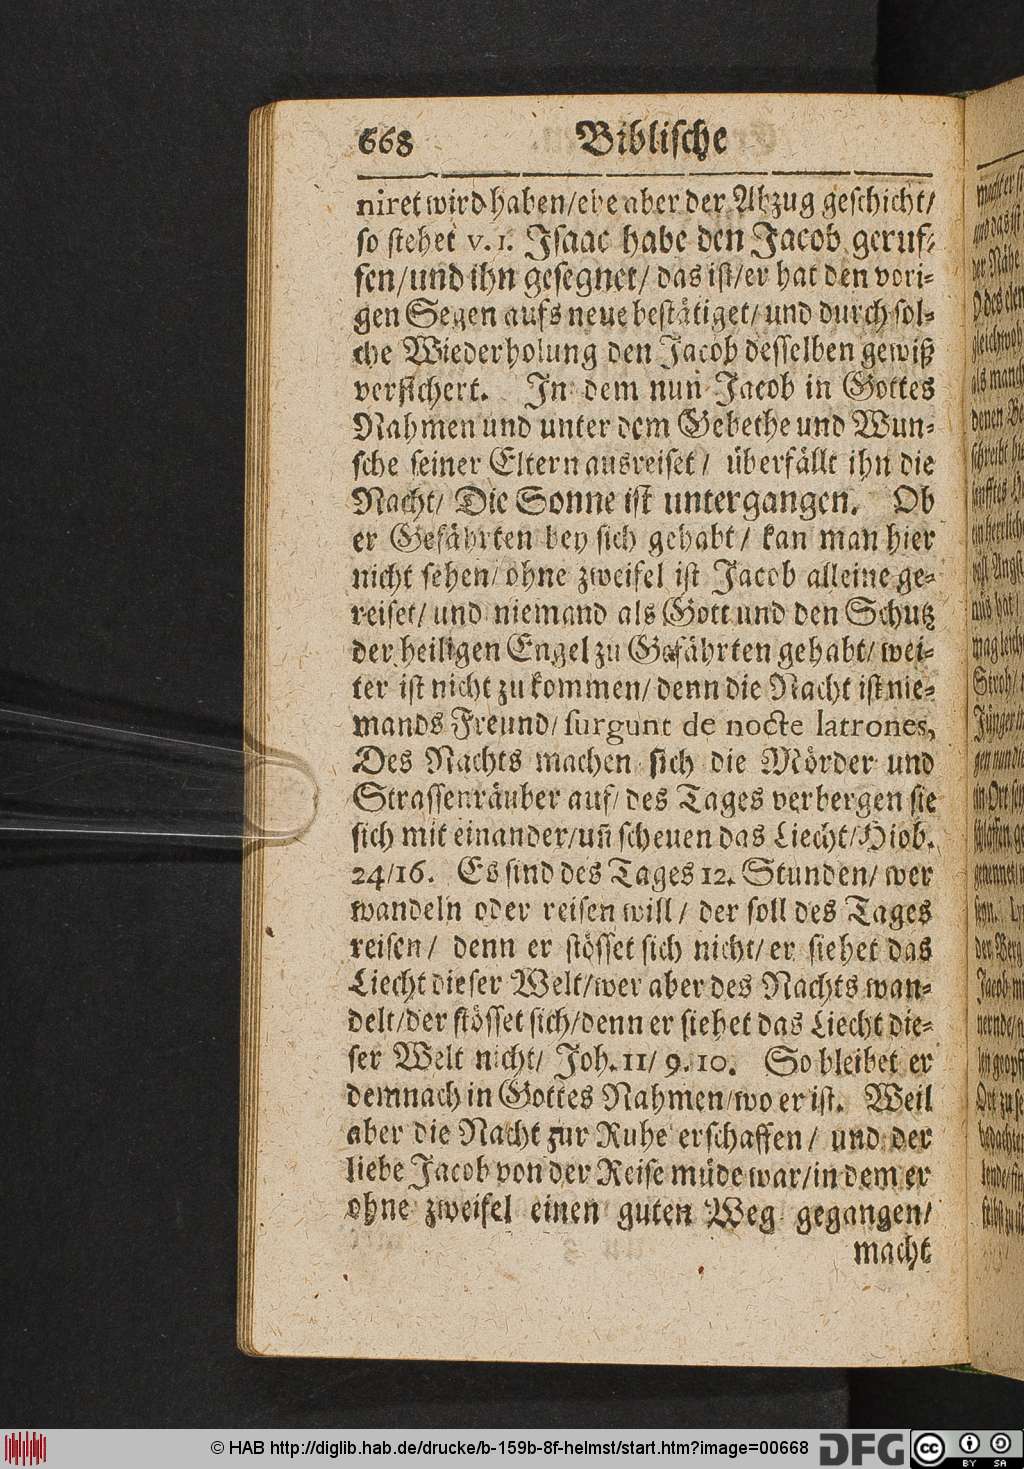 668 Biblische
niret wird haben/ehe aber der Abzug geschicht/
so stehet v. 1. Isaac habe den Jacob geruf-
fen/und ihn gesegnet/ das ist/er hat den vori-
gen Segen aufs neue bestätiget/ und durch sol-
che Wiederholung den Jacob desselben gewiß
versichert. In dem nun Jacob in Gottes
Nahmen und unter dem Gebethe und Wun-
sche seiner Eltern ausreiset/ überfällt ihn die
Nacht/ Die Sonne ist untergangen. Ob
er Gefährten bey sich gehabt/ kan man hier
nicht sehen/ ohne zweifel ist Jacob alleine ge-
reiset/ und niemand als Gott und den Schutz
der heiligen Engel zu Gefährten gehabt/ wei-
ter ist nicht zu kommen/ denn die Nacht ist nie-
mands Freund/ surgunt de nocte latrones,
Des Nachts machen sich die Mörder und
Strassenräuber auf/ des Tages verbergen sie
sich mit einander/un̄ scheuen das Liecht/Hiob.
24/16. Es sind des Tages 12. Stunden/ wer
wandeln oder reisen will/ der soll des Tages
reisen/ denn er stösset sich nicht/ er siehet das
Liecht dieser Welt/wer aber des Nachts wan-
delt/der stösset sich/denn er siehet das Liecht die-
ser Welt nicht/ Joh. 11/ 9. 10. So bleibet er
demnach in Gottes Nahmen/wo er ist. Weil
aber die Nacht zur Ruhe erschaffen/ und der
liebe Jacob von der Reise müde war/in dem er
ohne zweifel einen guten Weg gegangen/
macht
© HAB http://diglib.hab.de/drucke/b-159b-8f-helmst/start.htm?image=00668 DFG cc BY SA